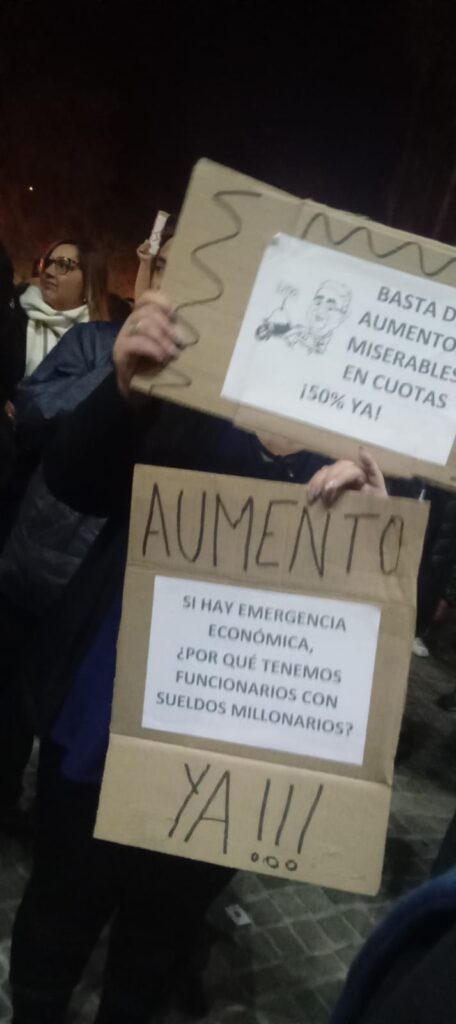 BASTA D
AUMENTO
MISERABLES
EN CUOTAS
¡50% YA!
AUMENTO
SI HAY EMERGENCIA
ECONÓMICA,
¿POR QUÉ TENEMOS
FUNCIONARIOS CON
SUELDOS MILLONARIOS?
YA!!!